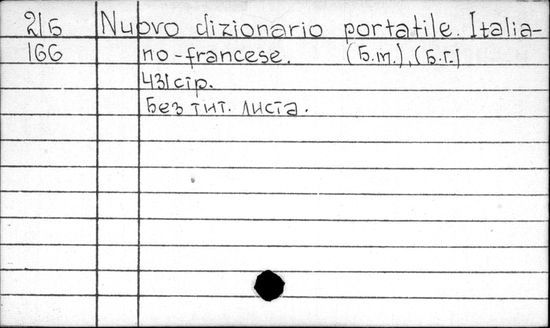 2/6 Nuovo dizionario portatile. Italia-
166 no-francese. (б.т.), (б.г.)
431 стр.
Без тит. листа.